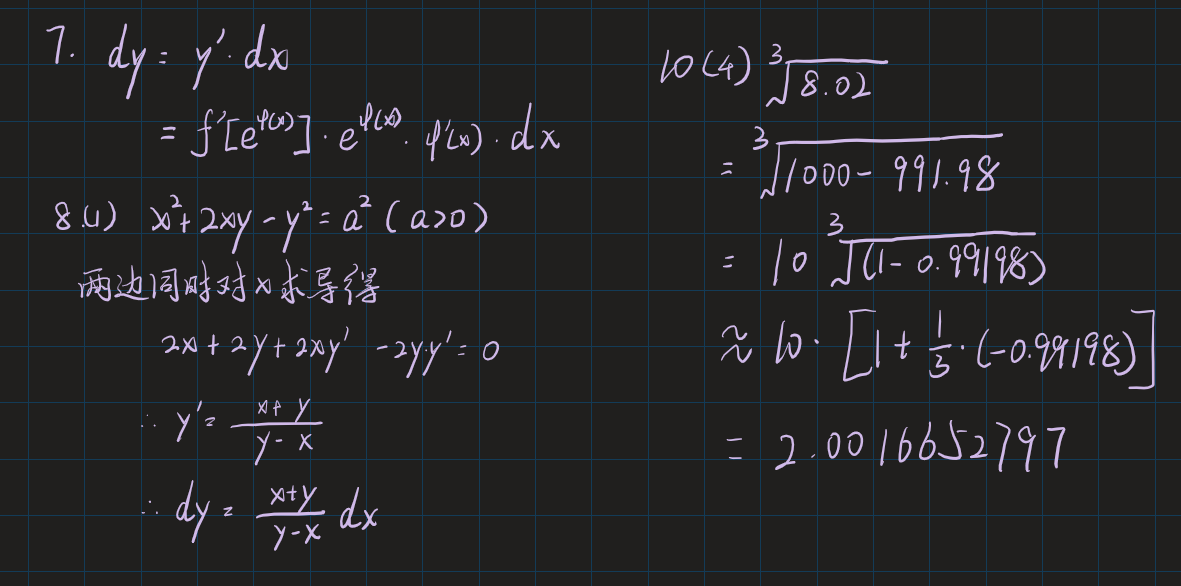 7. dy = y'·dx
= f'[e^φ(x)]·e^φ(x)·φ'(x)·dx
8.(1) x²+2xy-y²=a² (a>0)
两边同时对x求导得
2x+2y+2xy' -2y·y'=0
∴ y'= \frac{x+y}{y-x}
∴ dy= \frac{x+y}{y-x} dx
10(4) ∛8.02
= ∛1000-991.98
= 10 ∛(1-0.99198)
≈ 10·[1+\frac{1}{3}·(-0.99198)]
= 2.0016652797